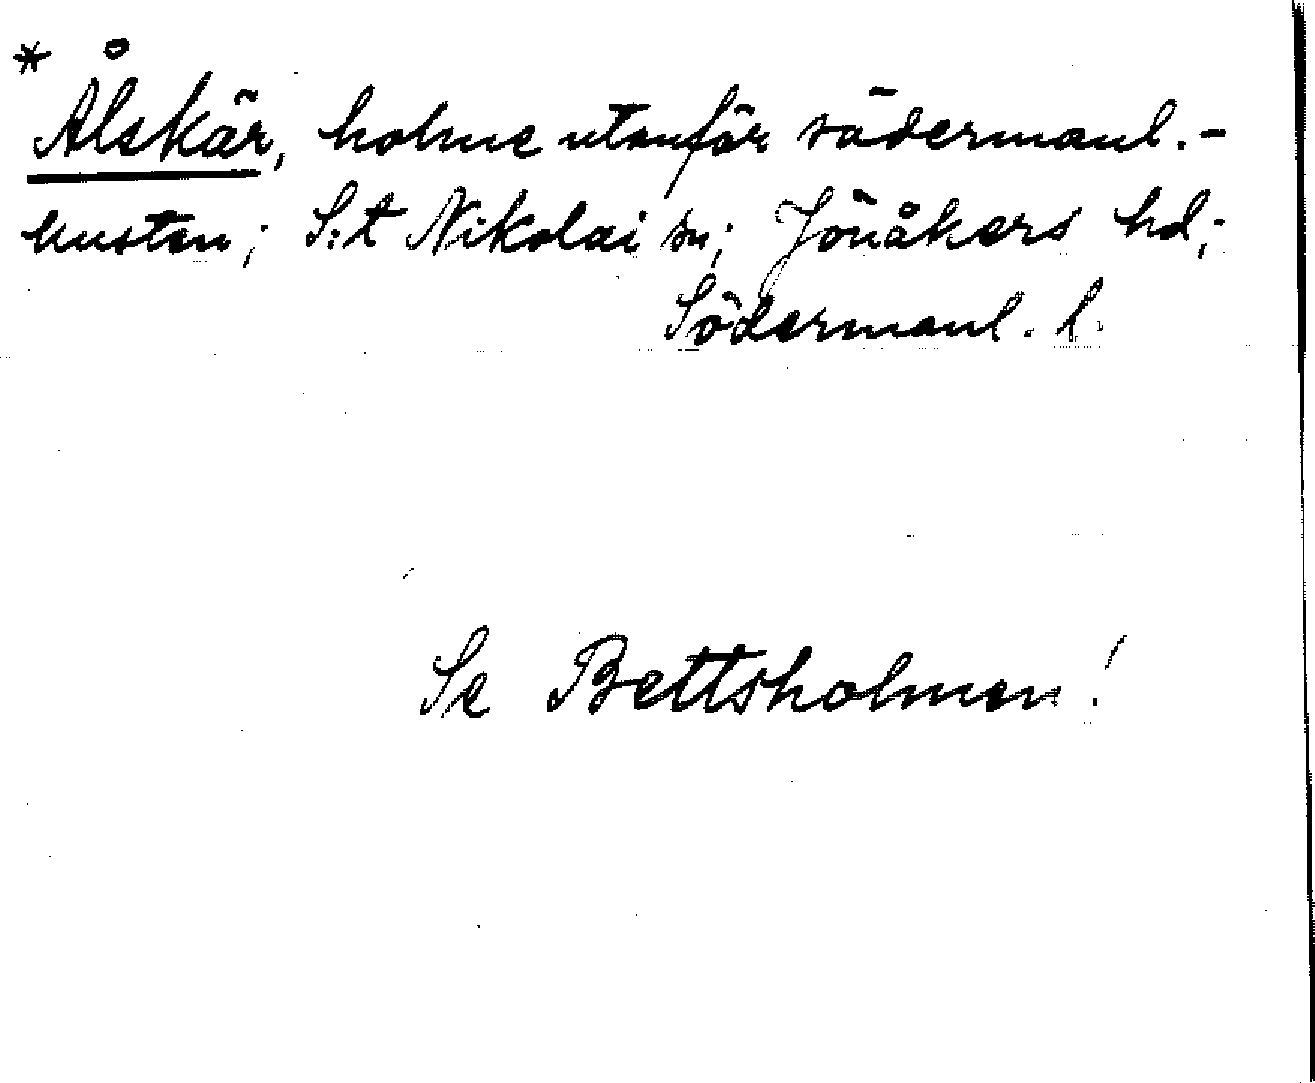 * Ålskär, holme utanför södermanl.-
kusten; S:t Nikolai sn; Jönåkers hd;
Södermanl. l.
Se Bettsholmen!